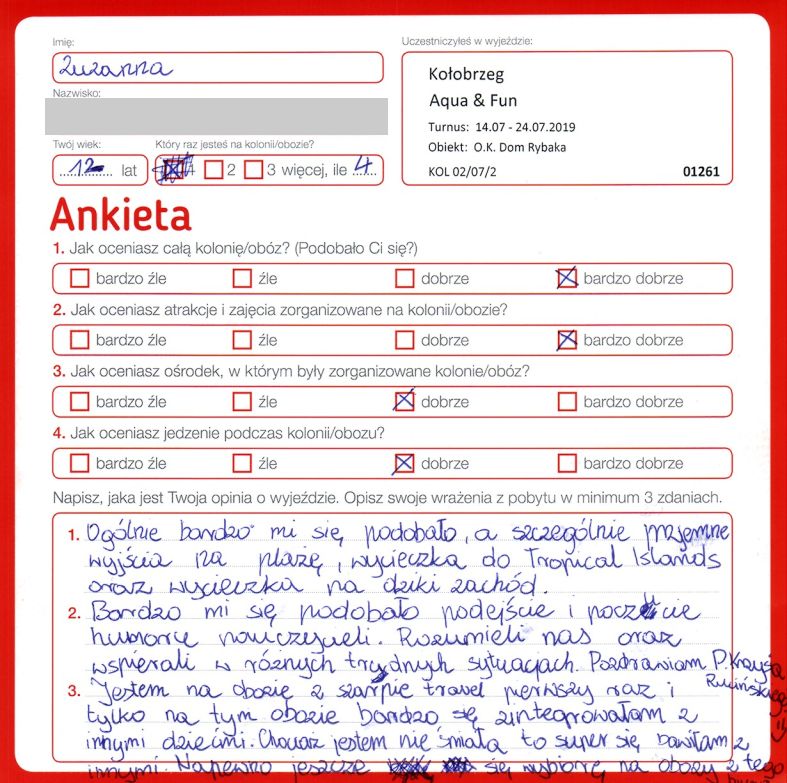 Imię:
Zuzanna
Nazwisko:
Twój wiek:
12 lat
Który raz jesteś na kolonii/obozie?
2 3 więcej, ile 4
Uczestniczyłeś w wyjeździe:
Kołobrzeg
Aqua & Fun
Turnus: 14.07 - 24.07.2019
Obiekt: O.K. Dom Rybaka
KOL 02/07/2 01261
Ankieta
1. Jak oceniasz całą kolonię/obóz? (Podobało Ci się?)
bardzo źle źle dobrze bardzo dobrze
2. Jak oceniasz atrakcje i zajęcia zorganizowane na kolonii/obozie?
bardzo źle źle dobrze bardzo dobrze
3. Jak oceniasz ośrodek, w którym były zorganizowane kolonie/obóz?
bardzo źle źle dobrze bardzo dobrze
4. Jak oceniasz jedzenie podczas kolonii/obozu?
bardzo źle źle dobrze bardzo dobrze
Napisz, jaka jest Twoja opinia o wyjeździe. Opisz swoje wrażenia z pobytu w minimum 3 zdaniach.
1. Ogólnie bardzo mi się podobało, a szczególnie przyjemne
wyjścia na plażę, wycieczka do Tropical Islands
oraz wycieczka na dziki zachód.
2. Bardzo mi się podobało podejście i poczucie
humoru nauczycieli. Rozumieli nas oraz
wspierali w różnych trudnych sytuacjach. Pozdrawiam P. Krzysia
Rucińskiego :)
3. Jestem na obozie z szarpie travel pierwszy raz i
tylko na tym obozie bardzo się zintegrowałam z
innymi dziećmi. Chociaż jestem nie śmiała to super się bawiłam z
innymi. Napewno jeszcze się wybiorę na obozy z tego